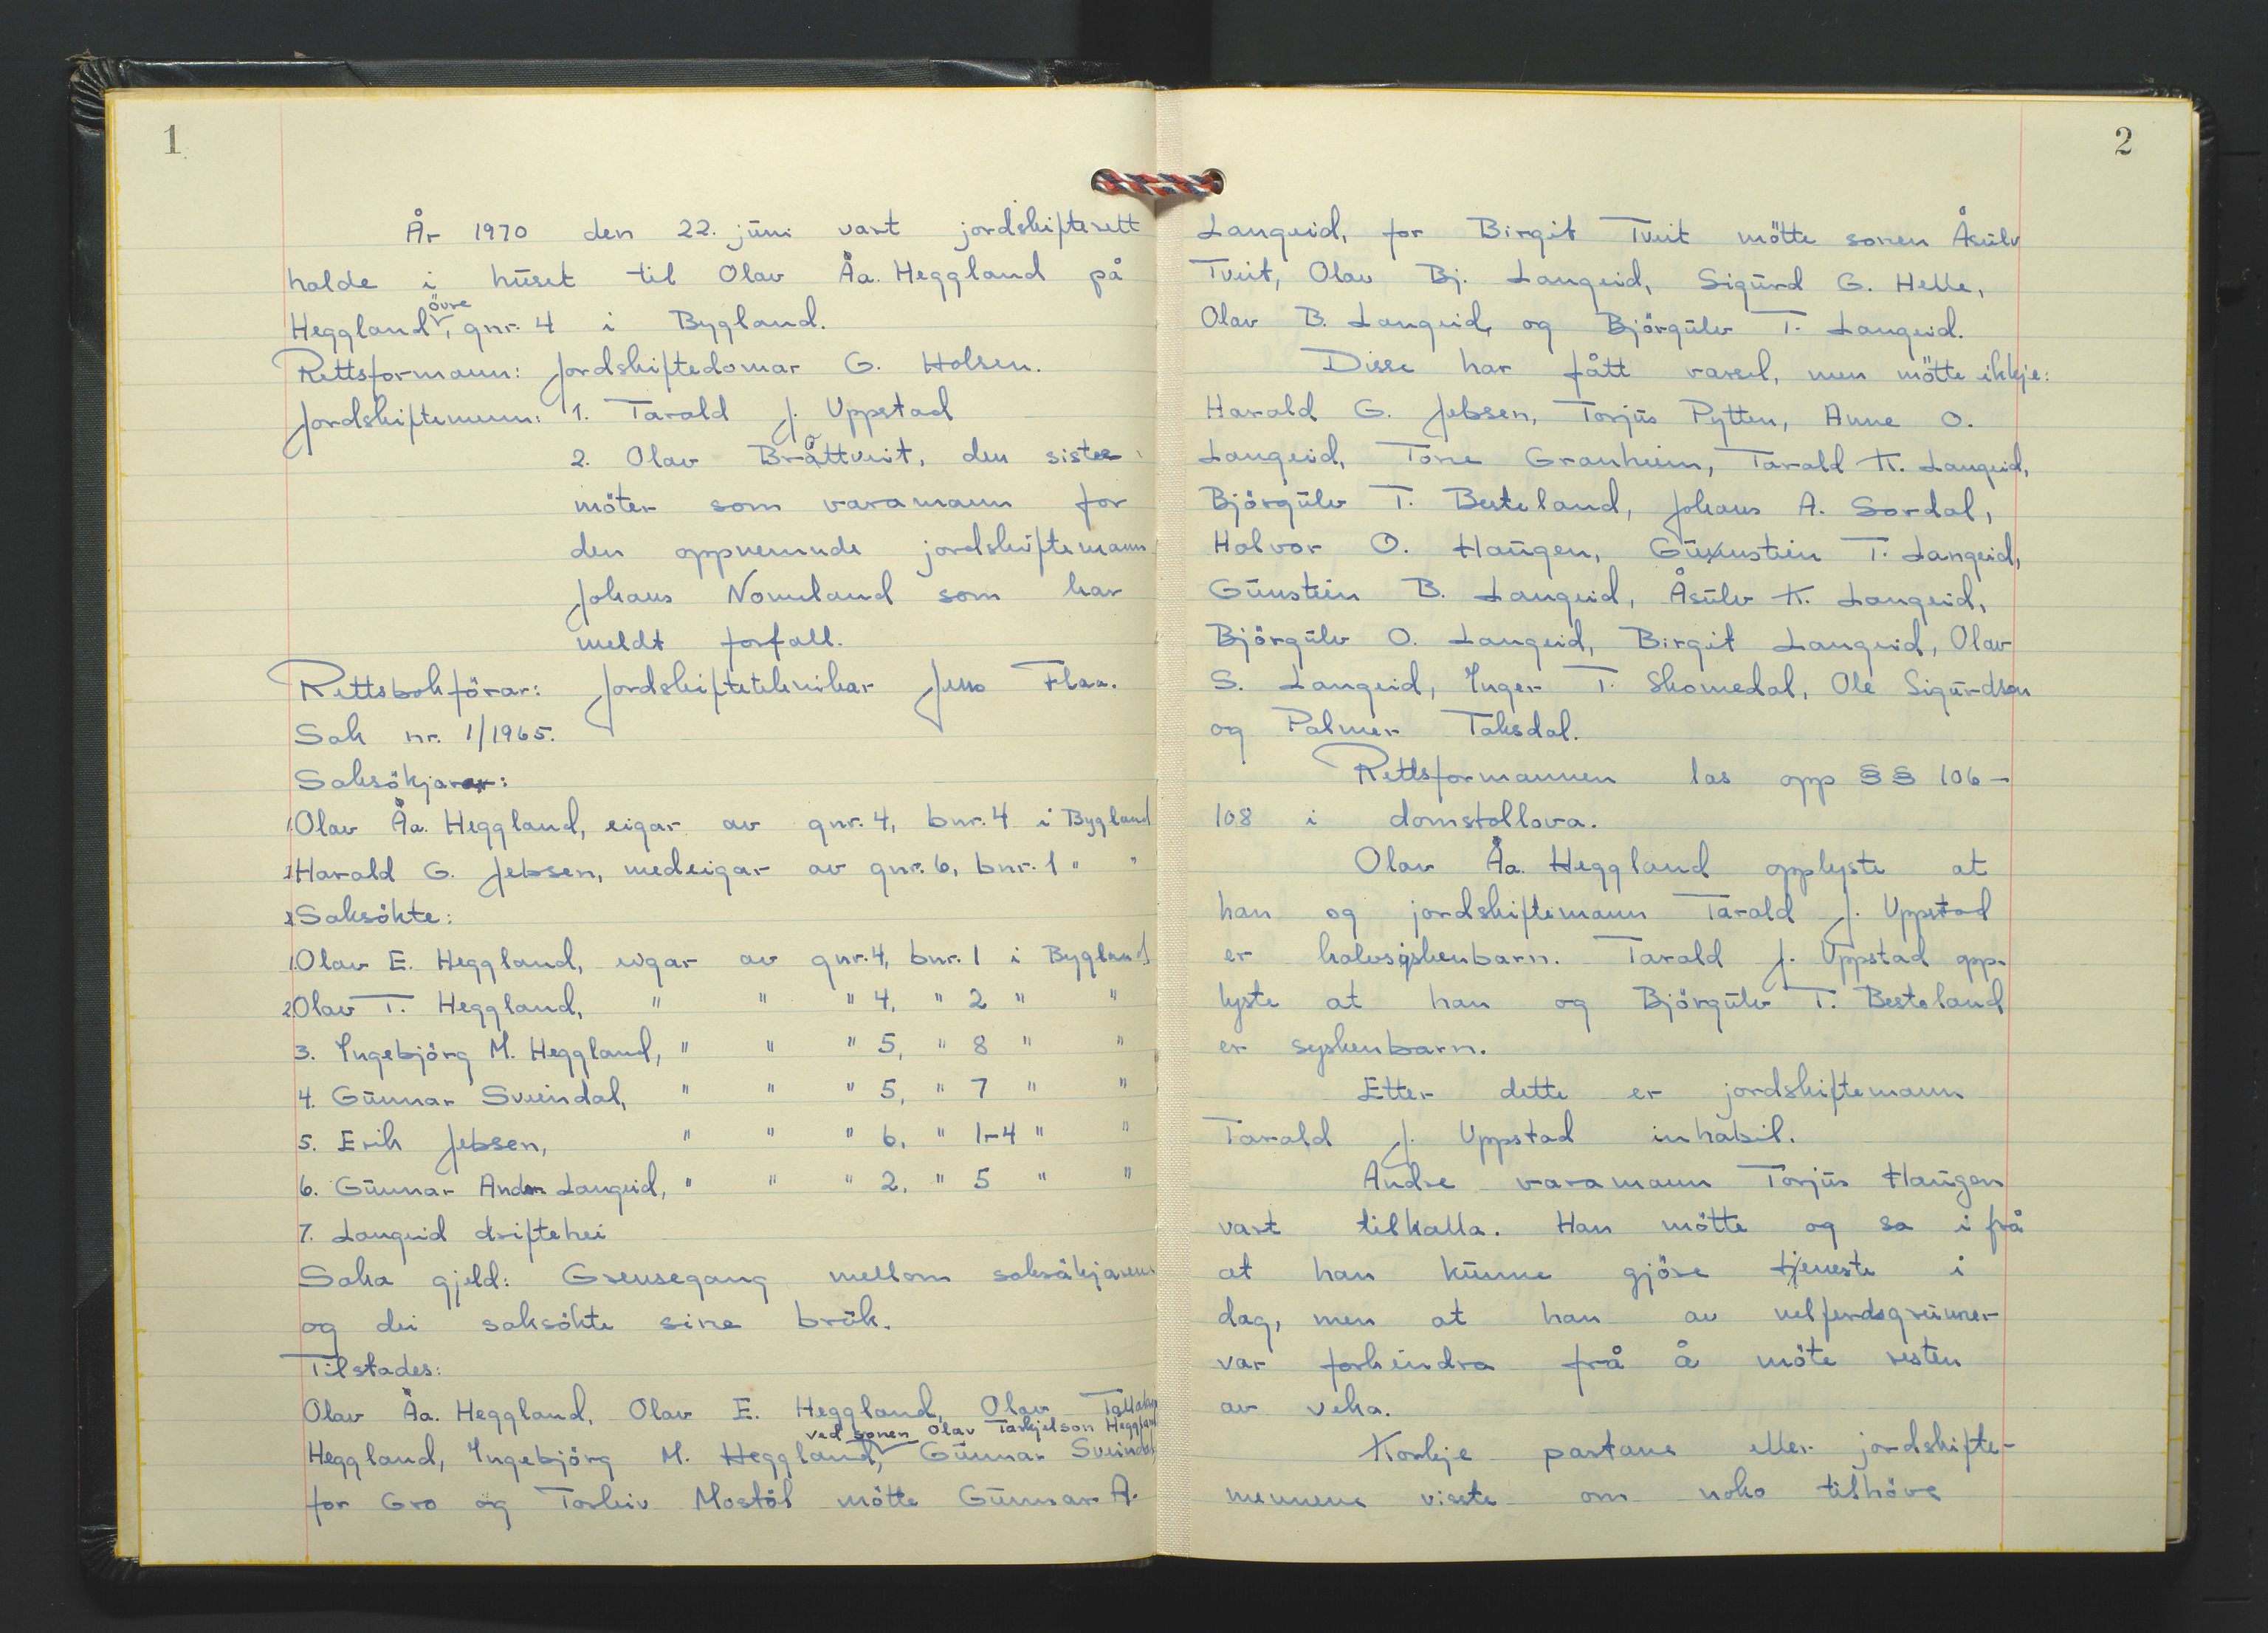 1
År 1970 den 22. juni vart jordskifterett
halde i huset til Olav Åa. Heggland på
Heggland øvre, gnr. 4 i Bygland.
Rettsformann: Jordskiftedomar G. Holsen.
Jordskiftemenn: 1. Tarald J. Uppstad
2. Olav Bråttveit, den siste
møter som varamann for
den oppnemnde jordskiftemann
Johans Nomeland som har
meldt forfall.
Rettsbokførar: Jordskifteteknikar Jens Flaa.
Sak nr. 1/1965.
Saksøkjarar:
1. Olav Åa. Heggland, eigar av gnr. 4, bnr. 4 i Bygland
Harald G. Jebsen, medeigar av gnr. 6, bnr. 1 " "
Saksøkte:
1. Olav E. Heggland, eigar av gnr. 4, bnr. 1 i Bygland
2. Olav T. Heggland, " " " 4, " 2 " "
3. Ingebjørg M. Heggland, " " " 5, " 8 " "
4. Gunnar Sveindal, " " " 5, " 7 " "
5. Erik Jebsen, " " " 6, " 1-4 " "
6. Gunnar Anders Langeid, " " " 2, " 5 " "
7. Langeid driftehei
Saka gjeld: Grensegang mellom saksøkjarens
og dei saksøkte sine bruk.
Tilstades:
Olav Åa. Heggland, Olav E. Heggland, Olav Tallakson
Heggland, Ingebjørg M. Heggland, ved sonen Olav Tarkjelson Heggland Gunnar Sveindal,
for Gro og Torkiv Mostøl møtte Gunnar A.
2
Langeid, for Birgit Tveit møtte sonen Åsulv
Tveit, Olav Bj. Langeid, Sigurd G. Helle,
Olav B. Langeid, og Bjørgulv T. Langeid.
Disse har fått varsel, men møtte ikkje:
Harald G. Jebsen, Torjus Pytten, Anne O.
Langeid, Tone Granheim, Tarald K. Langeid,
Bjørgulv T. Besteland, Johans A. Sordal,
Halvor O. Haugen, Gunnstein T. Langeid,
Gunstein B. Langeid, Åsulv K. Langeid,
Bjørgulv O. Langeid, Birgit Langeid, Olav
S. Langeid, Inger T. Skomedal, Ole Sigurdson
og Palmer Taksdal.
Rettsformannen las opp §§ 106-
108 i domstollova.
Olav Åa. Heggland opplyste at
han og jordskiftemann Tarald J. Uppstad
er halvsyskenbarn. Tarald J. Uppstad opp-
lyste at han og Bjørgulv T. Besteland
er syskenbarn.
Etter dette er jordskiftemann
Tarald J. Uppstad inhabil.
Andre varamann Torjus Haugen
vart tilkalla. Han møtte og sa i frå
at han kunne gjøre tjeneste i
dag, men at han av velferdsgrunner
var forhindra frå å møte resten
av veka.
Korkje partane eller jordskifte-
mennene visste om noko tilhøve